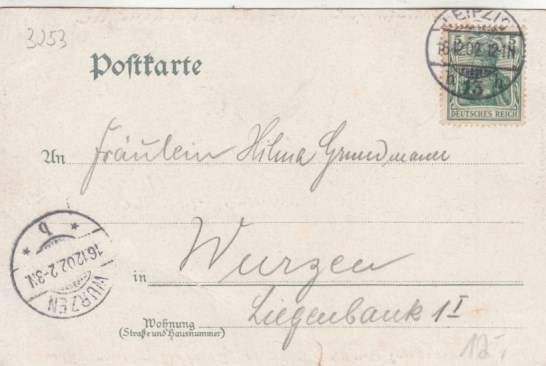 3253
LEIPZIG
5 5
16.12.02. 12-1N
b. 13. b.
DEUTSCHES REICH
Postkarte
An Fräulein Hilma Grundmann
in Wurzen
Liegenbank 1I
Wohnung
(Straße und Hausnummer)
WURZEN
16.12.02. 2-3N.
b
12,-